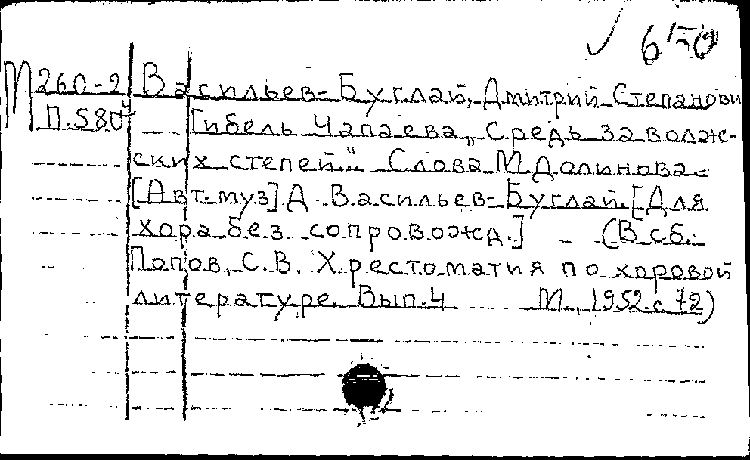 М 260-2 Васильев-Буглай, Дмитрий Степанови
П.580 Гибель Чапаева „Средь заволж-
ских степей". Слова М. Долинова.-
[Авт. муз] Д. Васильев-Буглай. [Для
хора без сопровожд.] - (В сб.
Попов, С.В. Хрестоматия по хоровой
литературе. Вып. 4 М., 1952 с. 72)